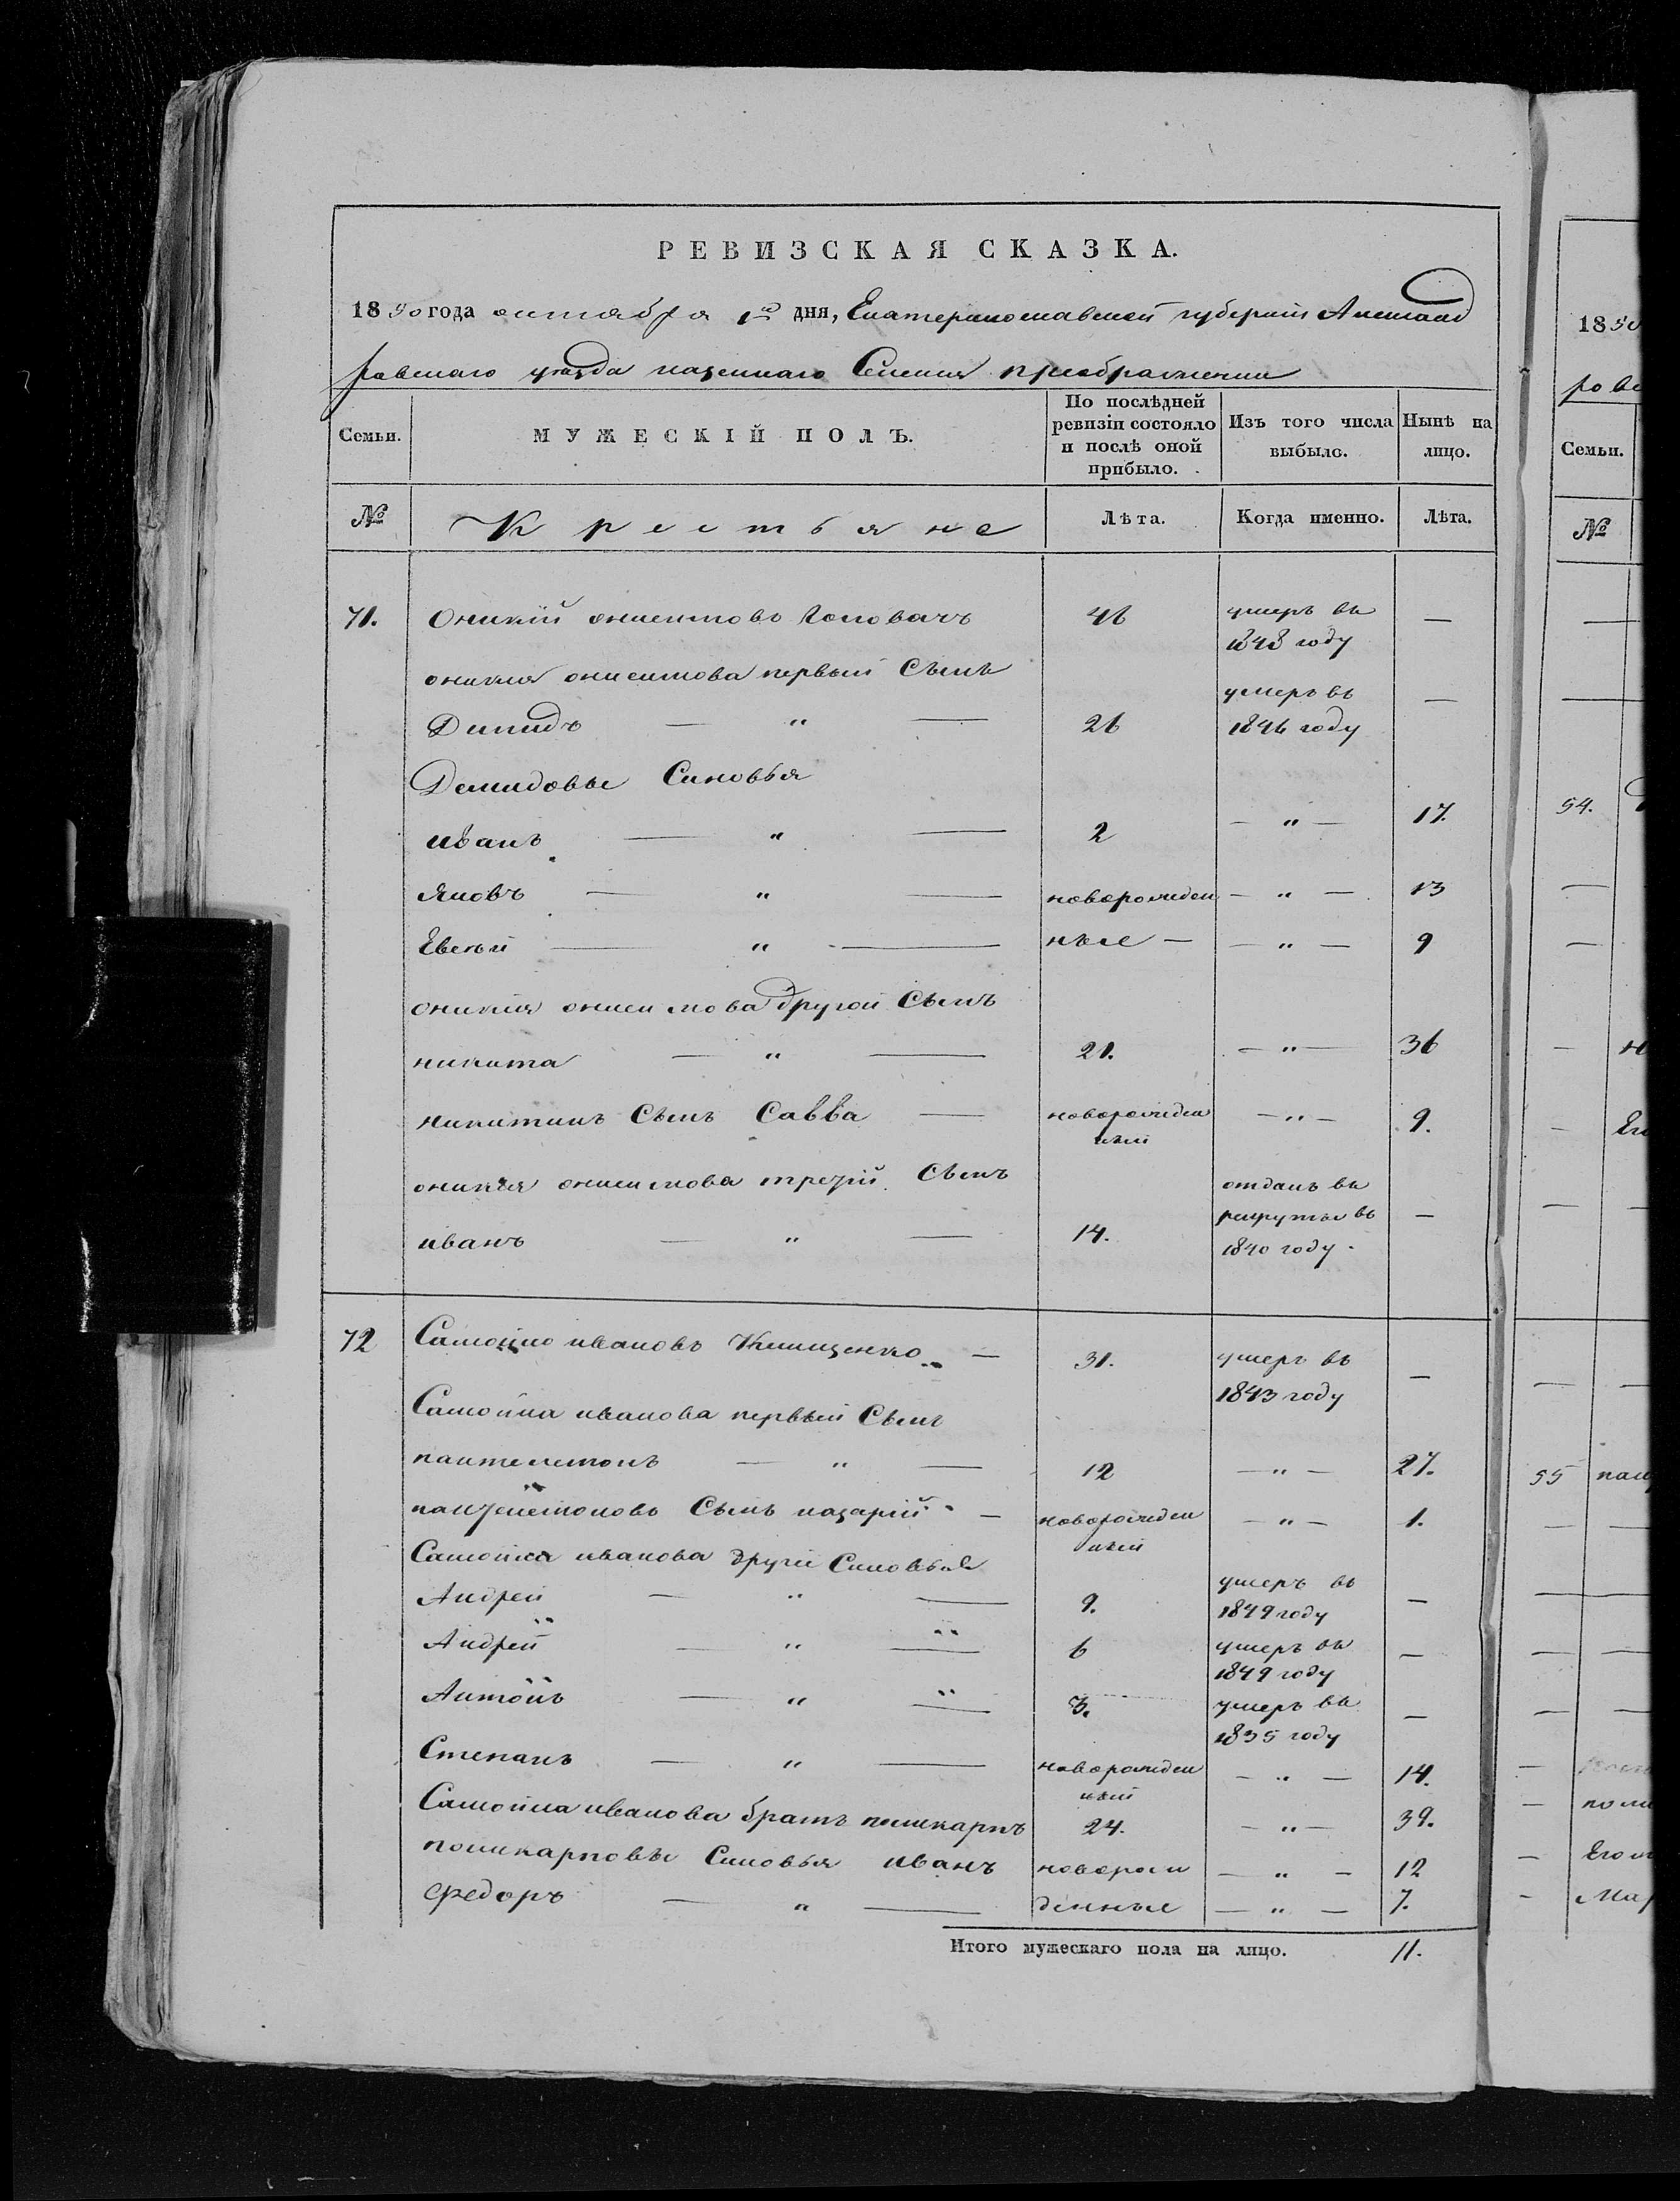 РЕВИЗСКАЯ СКАЗКА.
1850 года октября 1го дня, Екатеринославской губерніи Александ
ровскаго уѣзда казеннаго Селенія преображенки
Семьи. МУЖЕСКІЙ ПОЛЪ. По послѣдней ревизіи состояло и послѣ оной прибыло. Изъ того числа выбыло. Нынѣ на лицо.
№ Крестьяне Лѣта. Когда именно. Лѣта.
71. Оникій онисимовъ Головачъ 46 умеръ въ 1848 году —
оникія онисимова первый Сынъ
Димидъ — " — 26 умеръ въ 1846 году —
Демидовы Синовья
иванъ — " — 2 — " — 17.
Яковъ — " — новорожден — " — 13
Евсѣй — " — ные — — " — 9
оникія онисимова другой Сынъ
никита — " — 21. — " — 36
никитинъ Сынъ Савва — новорожден ный — " — 9.
оникія онисимова третій Сынъ
иванъ — " — 14. отданъ въ рекруты въ 1840 году. —
72 Самойло ивановъ — 31. умеръ въ 1843 году —
Самойла иванова первый Сынъ
пантелемонъ — " — 12 — " — 27.
пантелемоновъ Сынъ назарій — новорожден ный — " — 1.
Самойла иванова другіе Синовья
Андрей — " — 9. умеръ въ 1849 году —
Андрей — " — 6 умеръ въ 1849 году —
Антонъ — " — 3. умеръ въ 1835 году —
Степанъ — " — новорожден ный — " — 14.
Самойла иванова братъ поликарпъ 24. — " — 39.
поликарповы Синовья иванъ новорож — " — 12
федоръ — " — денные — " — 7.
Итого мужескаго пола на лицо. 11.
1850
рове
Семьи.
№
54.
55